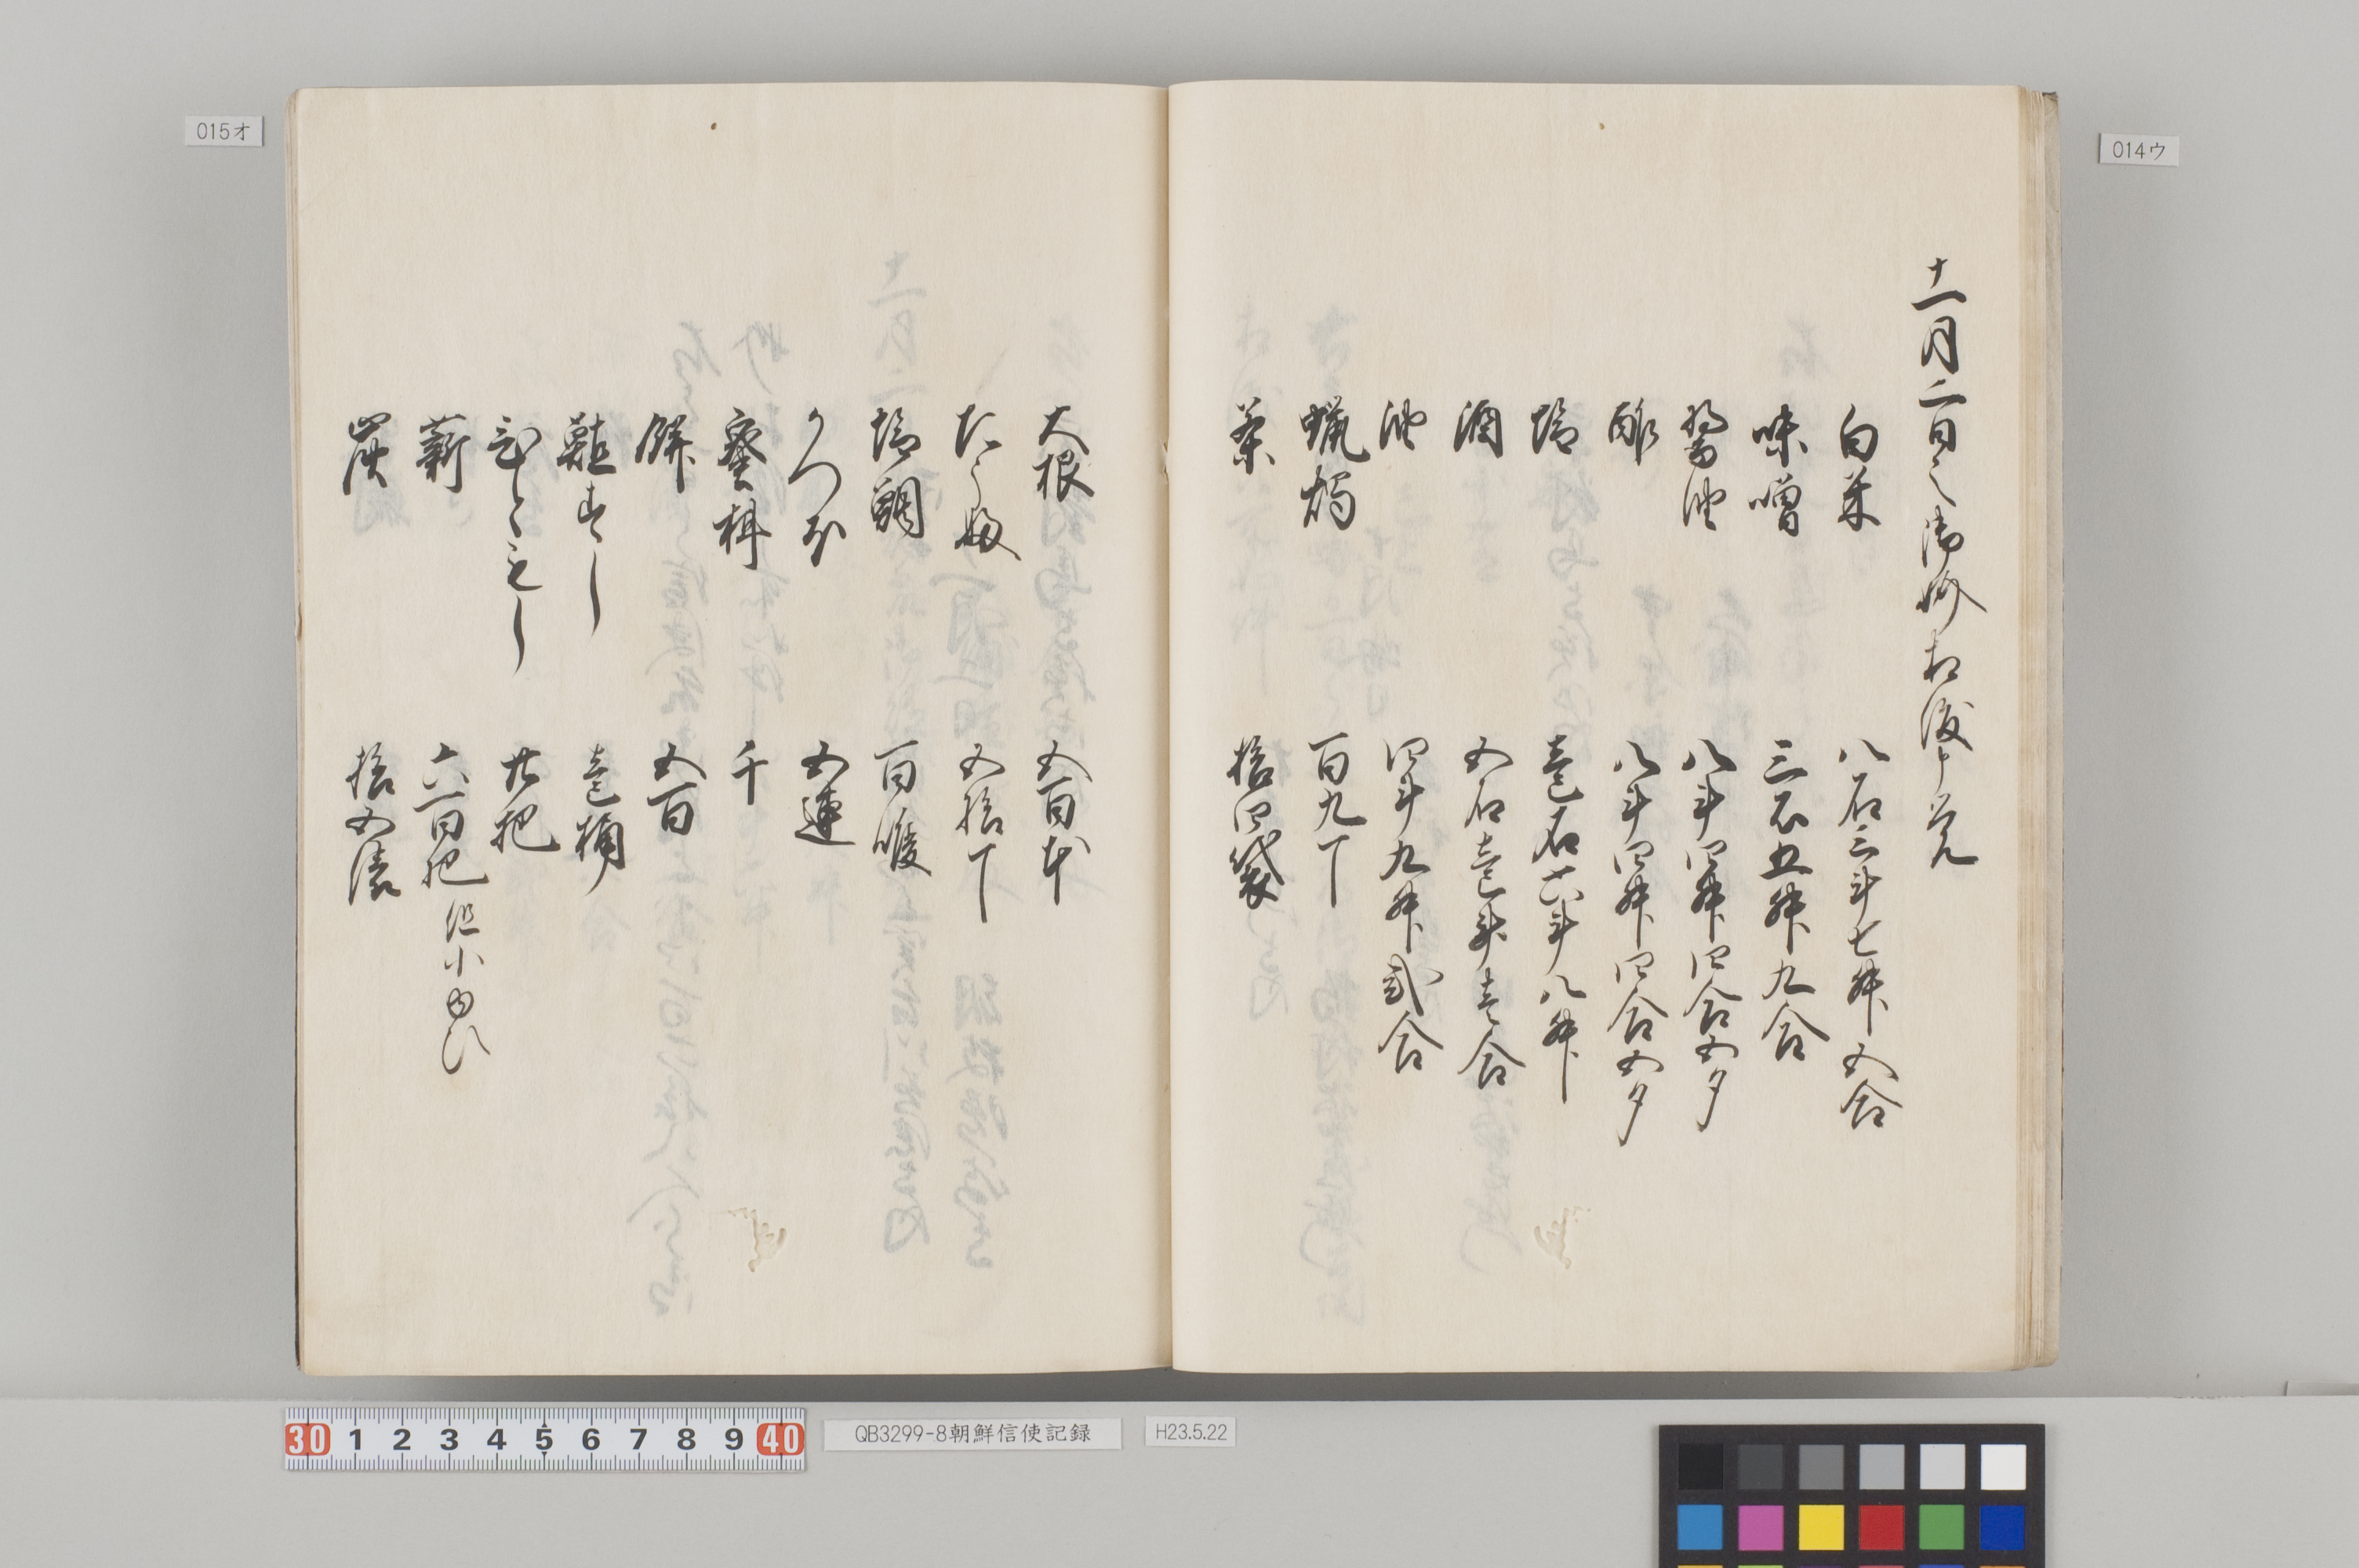 014ウ
十一月二日之御 相渡申覚
白米 八石三斗七升五合
味噌 三石五升九合
醤油 八斗四升四合五夕
酢 八斗四升四合五夕
塩 壱石六斗八升
酒 五石壱斗壱合
油 四斗九升弐合
蝋燭 百九丁
茶 拾四袋
015オ
大根 五百本
たうふ 五拾丁
塩鯛 百喉
かつほ 五連
千
餅 五百
すし 壱桶
廿把
薪 六百把 但小ゆひ
炭 拾五俵
30 1 2 3 4 5 6 7 8 9 40
QB3299-8朝鮮信使記録
H23.5.22